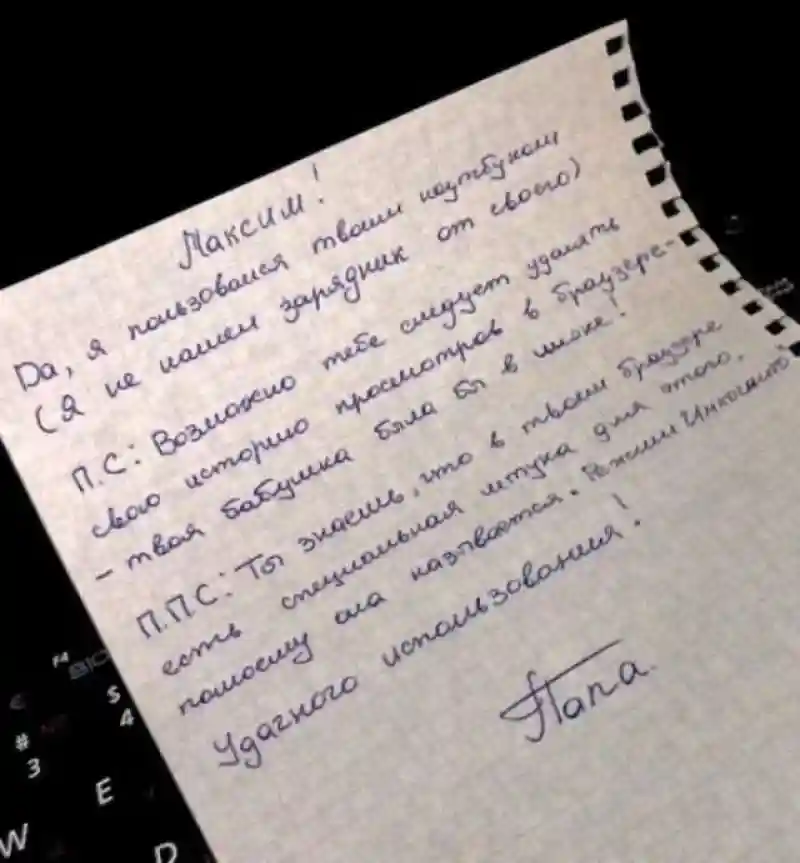 Максим!
Да, я пользовался твоим ноутбуком
(Я не нашел зарядник от своего)
П.С: Возможно тебе следует удалять
свою историю просмотров в браузере-
- твоя бабушка была бы в шоке!
П.П.С: Ты знаешь, что в твоем браузере
есть специальная штука для этого,
помоему она называется "Режим Инкогнито"
Удачного использования!
Папа.
F4
BIOS
S
4
#
3
E
W
D